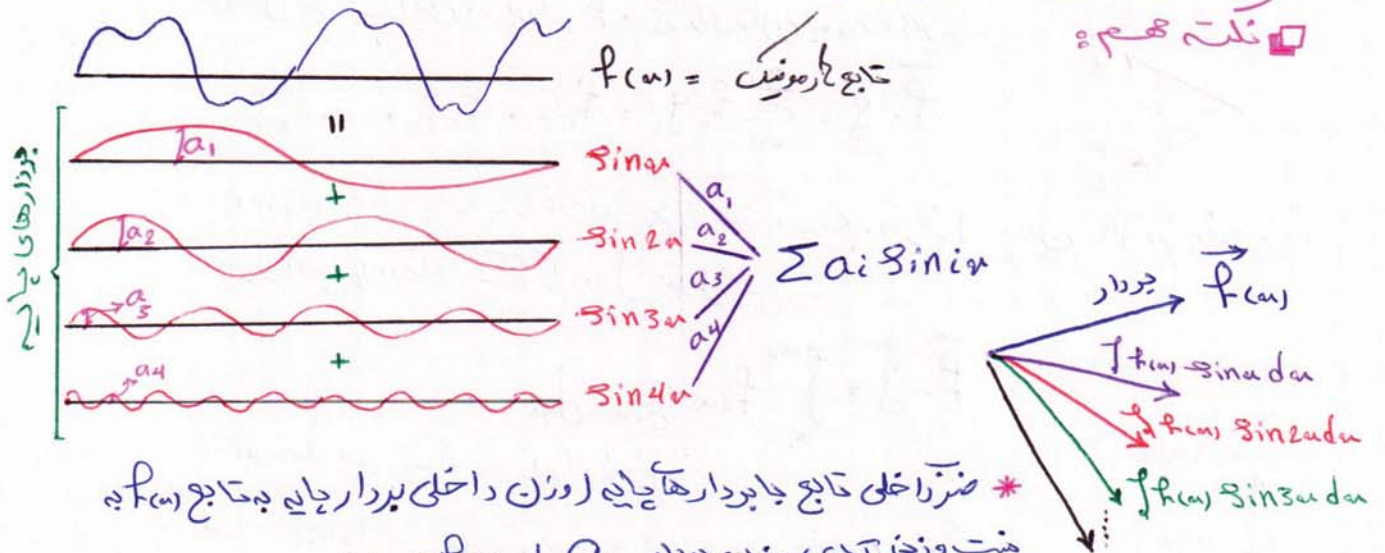 نکته مهم:
f(x) = تابع هارمونیک
=
a1
sinx
+
a2
sin2x
+
a3
sin3x
+
a4
sin4x
a1
a2
a3
a4
∑ ai sin ix
بردارهای پایه
بردار
f(x)
∫ f(x) sinx dx
∫ f(x) sin2x dx
∫ f(x) sin3x dx
* ضرب داخلی تابع با بردارهای پایه (وزن داخلی بردار پایه به تابع f(x) به